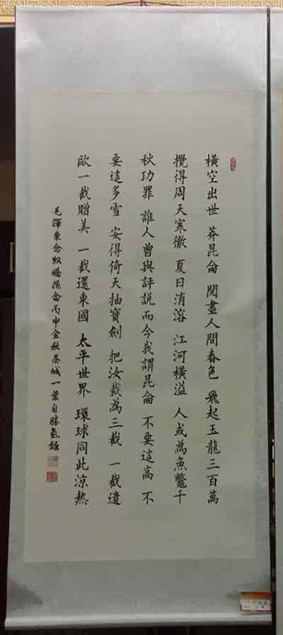 橫空出世 莽昆侖 閱盡人間春色 飛起玉龍三百萬
攪得周天寒徹 夏日消溶 江河橫溢 人或為魚鱉 千
秋功罪 誰人曾與評說 而今我謂昆侖 不要這高 不
要這多雪 安得倚天抽寶劍 把汝裁為三截 一截遺
歐 一截贈美 一截還東國 太平世界 環球同此涼熱
毛澤東念奴嬌昆侖丙申金秋茶城一葉自勝